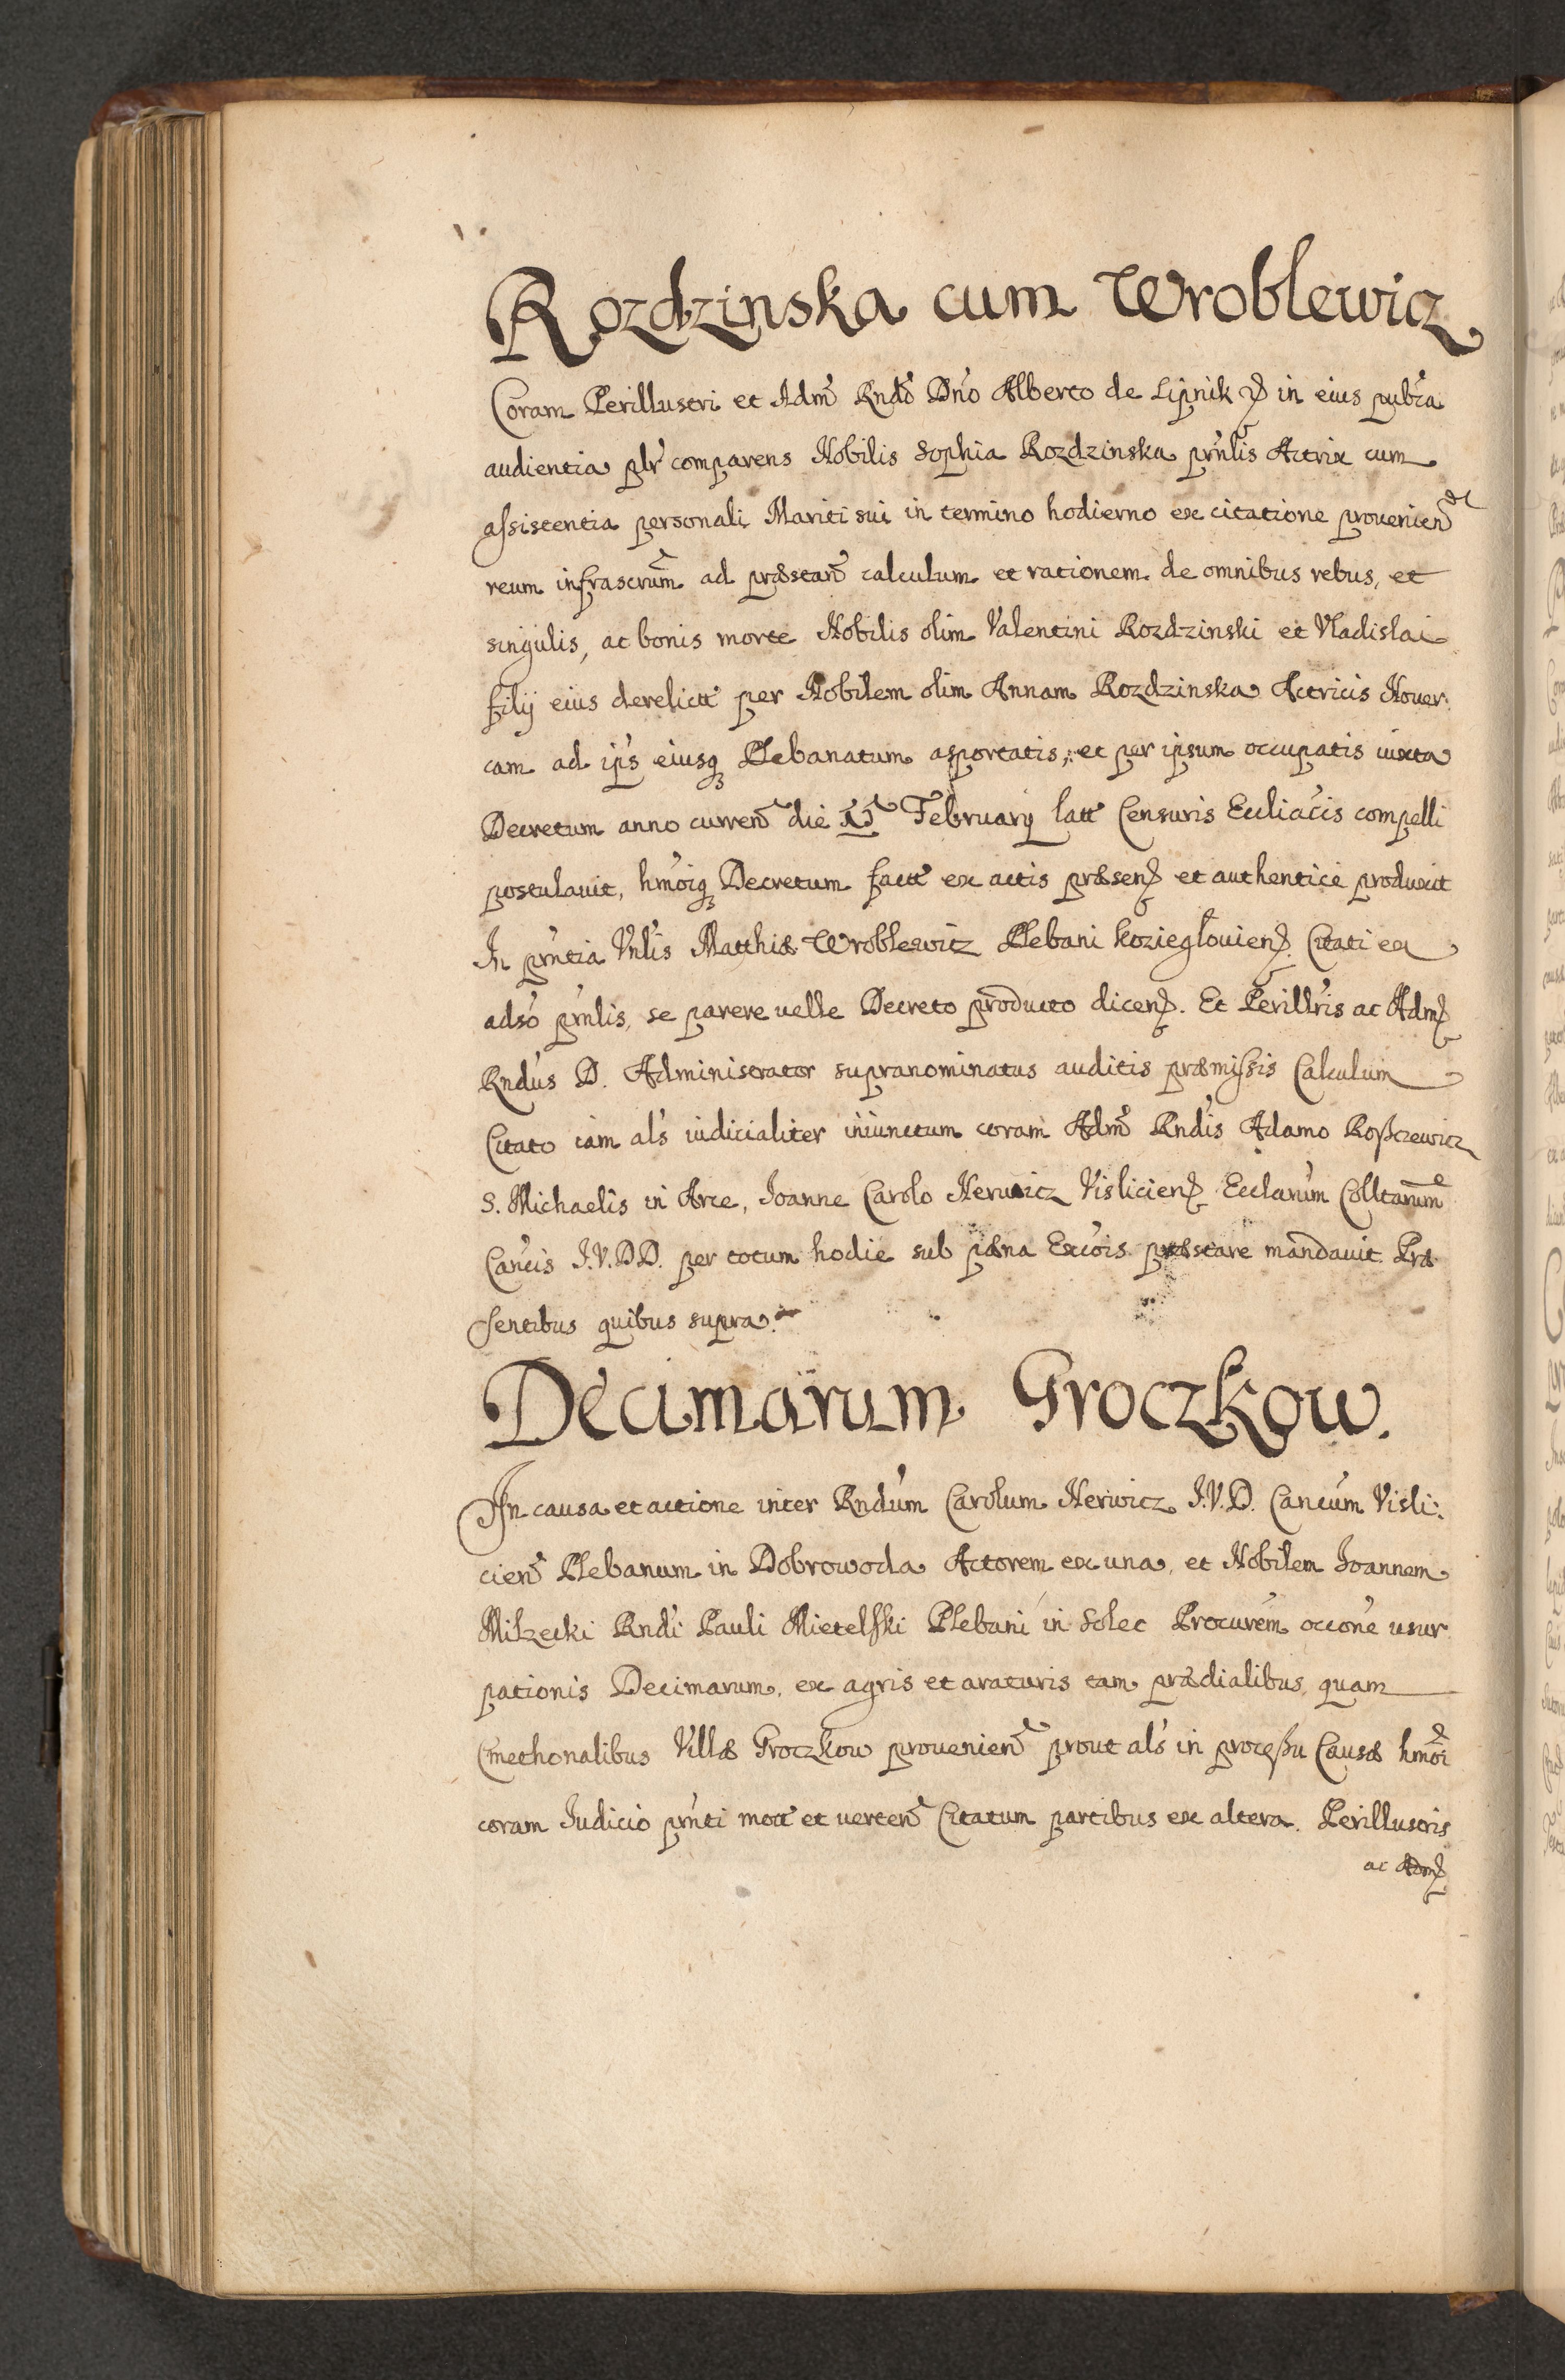 Rozdzinska cum Wroblewicz
Coram Perillustri et Adm̃ Rndo Dno Alberto de Lipnik in eius pubca
audientia plr comparens Nobilis Sophia Rozdzinska prnlis Actrix cum
aſsistentia personali Mariti sui in termino hodierno ex citatione prouenien̄
reum infrascrum ad præstan̄ calculum et rationem de omnibus rebus, et
singulis, ac bonis morte Nobilis olim Valentini Rozdzinski et Vladislai
filij eius derelictt per Nobilem olim Annam Rozdzinska Actricis Nouer:
cam ad ips eiusq Plebanatum asportatis, et per ipsum occupatis iuxta
Decretum anno curren̄ die Februarij latt Censuris Eccliacis compelli
postulauit, hmoiq Decretum factt ex actis præsen et authentice produxit
In prntia Vnlis Matthiæ Wroblewicz Plebani kozieglouien. Citati ex
adso prnlis, se parere uelle Decreto producto dicen. Et Perillris ac Adm
Rndus D. Administrator supranominatus auditis præmiſsis Calculum
Citato iam als iudicialiter iniunctum coram Adm̃ Rndis Adamo Roſzczewicz
S. Michaelis in Arce, Joanne Carolo Herwicz Vislicien Ecclarum Colltarum
Cancis J.V.DD. per totum hodie sub pæna Excois præstare mandauit. Præ
ſentibus quibus supra.
Decimarum Groczkow.
In causa et actione inter Rndum Carolum Herwicz J.V.D. Cancum Visli:
cien̄ Plebanum in Dobrowoda Actorem ex una, et Nobilem Joannem
Milzecki Rndi Pauli Mietelſki Plebani in Solec Procurem occone usur
pationis Decimarum, ex agris et araturis tam prædialibus, quam
Cmethonalibus Villæ Groczkow prouenien̄ prout als in proceſsu Causæ hmoi
coram Judicio prnti mott et uerten̄ Citatum partibus ex altera. Perillustris
ac Adm